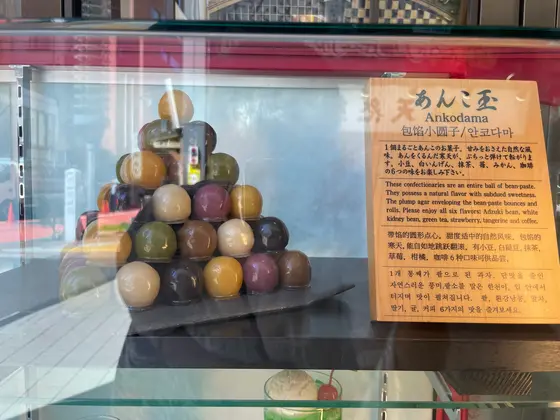 あんこ玉
Ankodama
包馅小圆子/안코다마
1個まるごとあんこのお菓子。甘みをおさえた自然な風
味。あんをくるんだ寒天が、ぷちっと弾けて転がりま
す。小豆、白いんげん、抹茶、苺、みかん、珈琲
の6つの味をお楽しみ下さい。
These confectionaries are an entire ball of bean-paste.
They possess a natural flavor with subdued sweetness.
The plump agar enveloping the bean-paste bounces and
rolls. Please enjoy all six flavors; Adzuki bean, white
kidney bean, green tea, strawberry, tangerine and coffee.
带馅的圆形点心。甜度适中的自然风味。包馅的
寒天,能自如地跳跃翻滚。有小豆、白芸豆、抹茶、
草莓、柑橘、咖啡6种口味可供品尝。
1개 통째가 팥으로 된 과자. 단맛을 줄인
자연스러운 풍미.팥소를 감싼 한천이, 입 안에서
터지며 맛이 펼쳐집니다. 팥, 흰강낭콩, 말차,
딸기, 귤, 커피 6가지의 맛을 즐겨보세요.